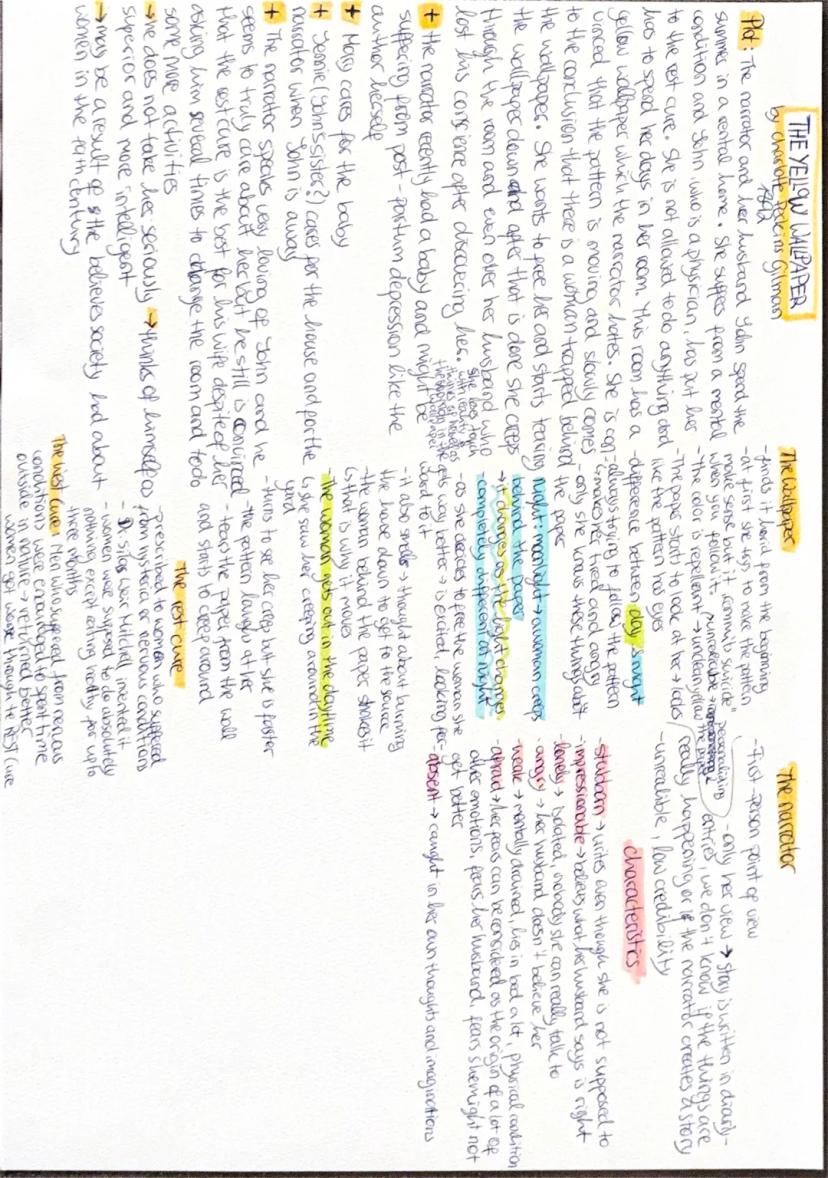 THE YELLOW WALLPAPER
by Charlotte Perkins Gilman
1892
Plot: The narrator and her husband John spend the
summer in a rental home. She suffers from a mental
condition and John, who is a physician, has put her
to the rest cure. She is not allowed to do anything and
has to spend her days in her room. This room has a
yellow wallpaper which the narrator hates. She is con-
vinced that the pattern is moving and slowly comes
to the conclusion that there is a woman trapped behind
the wallpaper. She wants to free her and starts tearing
the wallpaper down and after that is done she creeps
through the room and even over her husband who
lost his conscience after discovering her.
+ the narrator recently had a baby and might be
suffering from post-partum depression like the
author herself
+ Mary cares for the baby
+ Jennie (John's sister?) cares for the house and for the
narrator when John is away
+ The narrator speaks very loving of John and he
seems to truly care about her but he still is convinced
that the rest cure is the best for his wife despite of her
asking him several times to change the room and to do
some more activities
→ he does not take her seriously → thinks of himself as
superior and more intelligent
→ may be a result of the believes society had about
women in the 19th century
The Wallpaper
- finds it horrid from the beginning
- at first she tries to make the pattern
make sense but it "commits suicide"
when you follow it
- the color is repellent → unclean yellow
- The paper starts to look at her → looks
like the pattern has eyes
- difference between day & night
- always trying to follow the pattern
↳ makes her tired and angry
- only she knows these things about
the paper
night: moonlight → a woman creeps
behind the paper
→ it changes as the light changes
- completely different at night
- as she decides to free the woman she
gets way better → is excited, looking for-
ward to it
- it also smells → thought about burning
the house down to get to the source
- the woman behind the paper shakes it
↳ that is why it moves
- the woman gets out in the daytime
↳ she saw her creeping around in the
yard
- turns to see her creep but she is faster
- the pattern laughs at her
- tears the paper from the wall
and starts to creep around
The rest cure
- prescribed to women who suffered
from hysteria or nervous conditions
- Dr. Silas Weir Mitchell invented it
- women were supposed to do absolutely
nothing except eating healthy for up to
three months
The West Cure: Men who suffered from nervous
conditions were encouraged to spent time
outside in nature → returned better
women got worse through to Rest Cure
The narrator
- First-person point of view
- only her view → story is written in diary-
entries, we don't know if the things are
really happening or if the narrator creates a story
- unrealible, low credibility
characteristics
- stubborn → writes even though she is not supposed to
- impressionable → believes what her husband says is right
- lonely → isolated, nobody she can really talk to
- angry → her husband doesn't believe her
- weak → mentally drained, lies in bed a lot, physical condition
- afraid → her fears can be considered as the origin of a lot of
other emotions, fears her husband, fears she might not
get better
- absent → caught in her own thoughts and imaginations